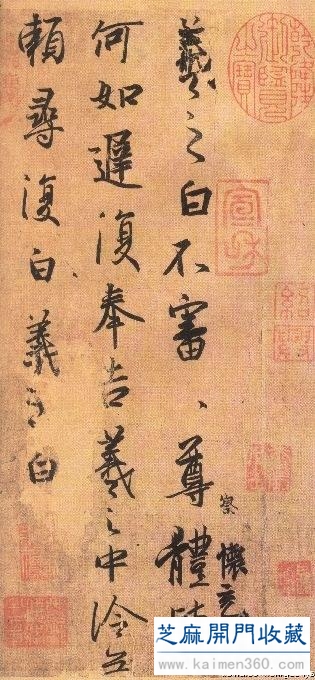 羲之白不審、尊體
何如遲復奉告羲之中冷無
賴尋復白羲之白
察
懷充
宣和
芝麻開門收藏
www.kaimen360.com